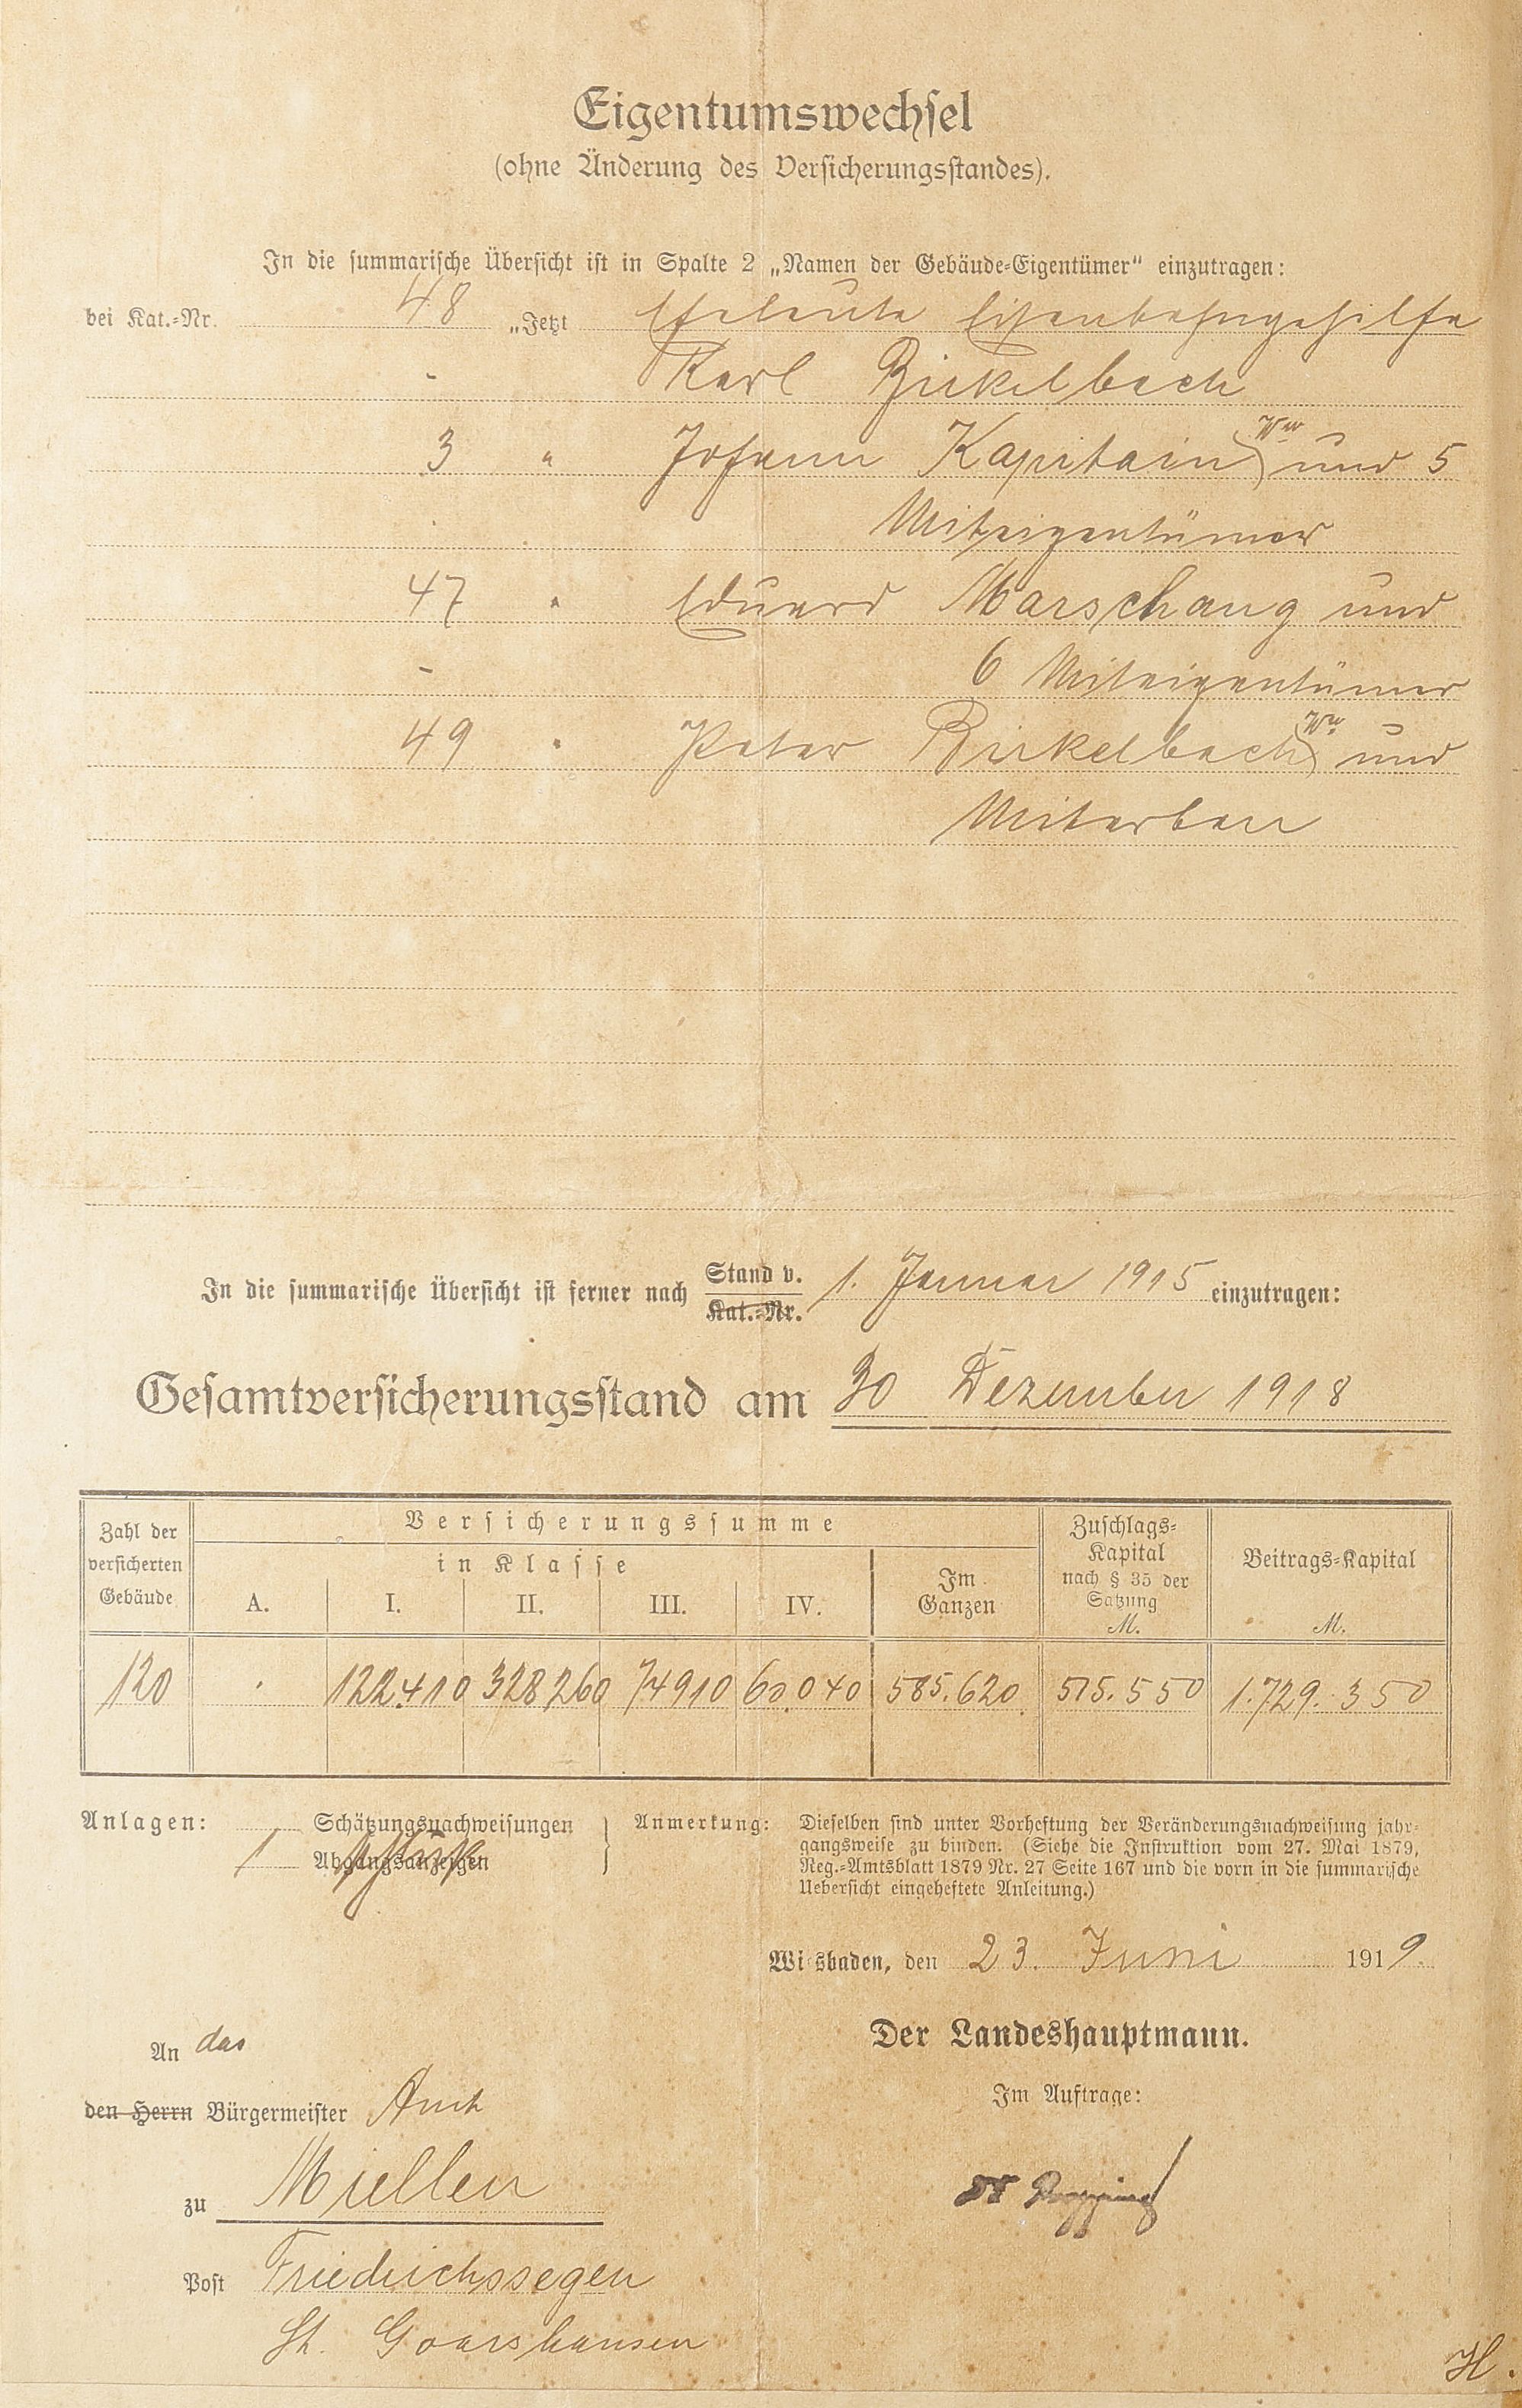 Eigentumswechsel
(ohne Änderung des Versicherungsstandes).
In die summarische Übersicht ist in Spalte 2 „Namen der Gebäude-Eigentümer“ einzutragen:
bei Kat.-Nr. 48 „Jetzt Eheleute Eisenbahngehilfe
- Karl Birkelbach
3 " Johann Kapitain Ww und 5
Miteigentümer
47 " Eduard Marschang und
- 6 Miteigentümer
49 " Peter Birkelbach Ww und
Miterben
In die summarische Übersicht ist ferner nach Stand v. 1. Januar 1915 einzutragen:
Kat.-Nr.
Gesamtversicherungsstand am 30 Dezember 1918
Zahl der versicherten Gebäude
Versicherungssumme
in Klasse
A. I. II. III. IV.
Im Ganzen
Zuschlags-Kapital nach § 35 der Satzung M.
Beitrags-Kapital M.
120 . 122410 328260 74910 60.040 585.620 515.550 1.729.350
Anlagen: Schätzungsnachweisungen
1 Abgangsanzeigen
Anmerkung: Dieselben sind unter Vorheftung der Veränderungsnachweisung jahr-
gangsweise zu binden. (Siehe die Instruktion vom 27. Mai 1879,
Reg.-Amtsblatt 1879 Nr. 27 Seite 167 und die vorn in die summarische
Uebersicht eingeheftete Anleitung.)
Wiesbaden, den 23. Juni 1919.
Der Landeshauptmann.
Im Auftrage:
An das
den Herrn Bürgermeister Amt
zu Miellen
Post Friedrichssegen
St. Goarshausen
H.